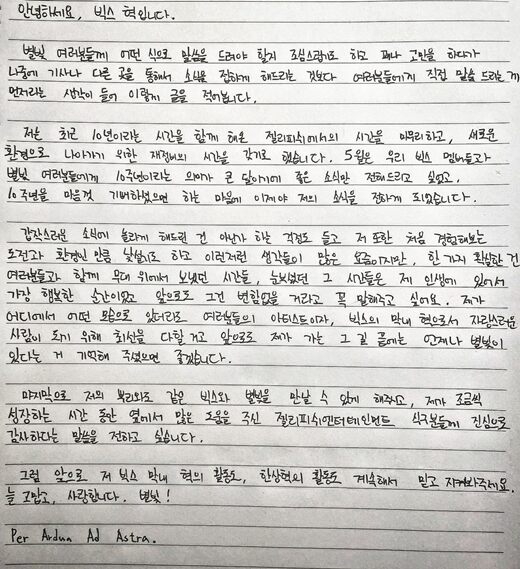 안녕하세요, 빅스 혁입니다.
별빛 여러분들께 어떤 식으로 말씀을 드려야 할지 조심스럽기도 하고 꽤나 고민을 하다가
나중에 기사나 다른 곳을 통해서 소식을 접하게 해드리는 것보다 여러분들에게 직접 말씀 드리는게
먼저라는 생각이 들어 이렇게 글을 적어봅니다.
저는 최근 10년이라는 시간을 함께 해온 젤리피쉬에서의 시간을 마무리하고, 새로운
환경으로 나아가기 위한 재정비의 시간을 갖기로 했습니다. 5월은 우리 빅스 멤버들과
별빛 여러분들에게 10주년이라는 의미가 큰 달이기에 좋은 소식만 전해드리고 싶었고,
10주년을 마음껏 기뻐하셨으면 하는 마음에 이제야 저의 소식을 전하게 되었습니다.
갑작스러운 소식에 놀라게 해드린 건 아닌가 하는 걱정도 들고 저 또한 처음 경험해보는
도전과 환경인 만큼 낯설기도 하고 이런저런 생각들이 많은 요즘이지만, 한 가지 확실한 건
여러분들과 함께 무대 위에서 보냈던 시간들, 눈부셨던 그 시간들은 제 인생에 있어서
가장 행복한 순간이었고 앞으로도 그건 변함없을 거라고 꼭 말해주고 싶어요. 제가
어디에서 어떤 모습으로 있더라도 여러분들의 아티스트이자, 빅스의 막내 혁으로서 자랑스러운
사람이 되기 위해 최선을 다할 거고 앞으로도 제가 가는 그 길 끝에는 언제나 별빛이
있다는 거 기억해 주셨으면 좋겠습니다.
마지막으로 저의 뿌리와도 같은 빅스와 별빛을 만날 수 있게 해주고, 제가 조금씩
성장하는 시간 동안 옆에서 많은 도움을 주신 젤리피쉬엔터테인먼트 식구분들께 진심으로
감사하다는 말씀을 전하고 싶습니다.
그럼 앞으로 저 빅스 막내 혁의 활동도, 한상혁의 활동도 계속해서 믿고 지켜봐주세요.
늘 고맙고, 사랑합니다. 별빛!
Per Ardua Ad Astra.